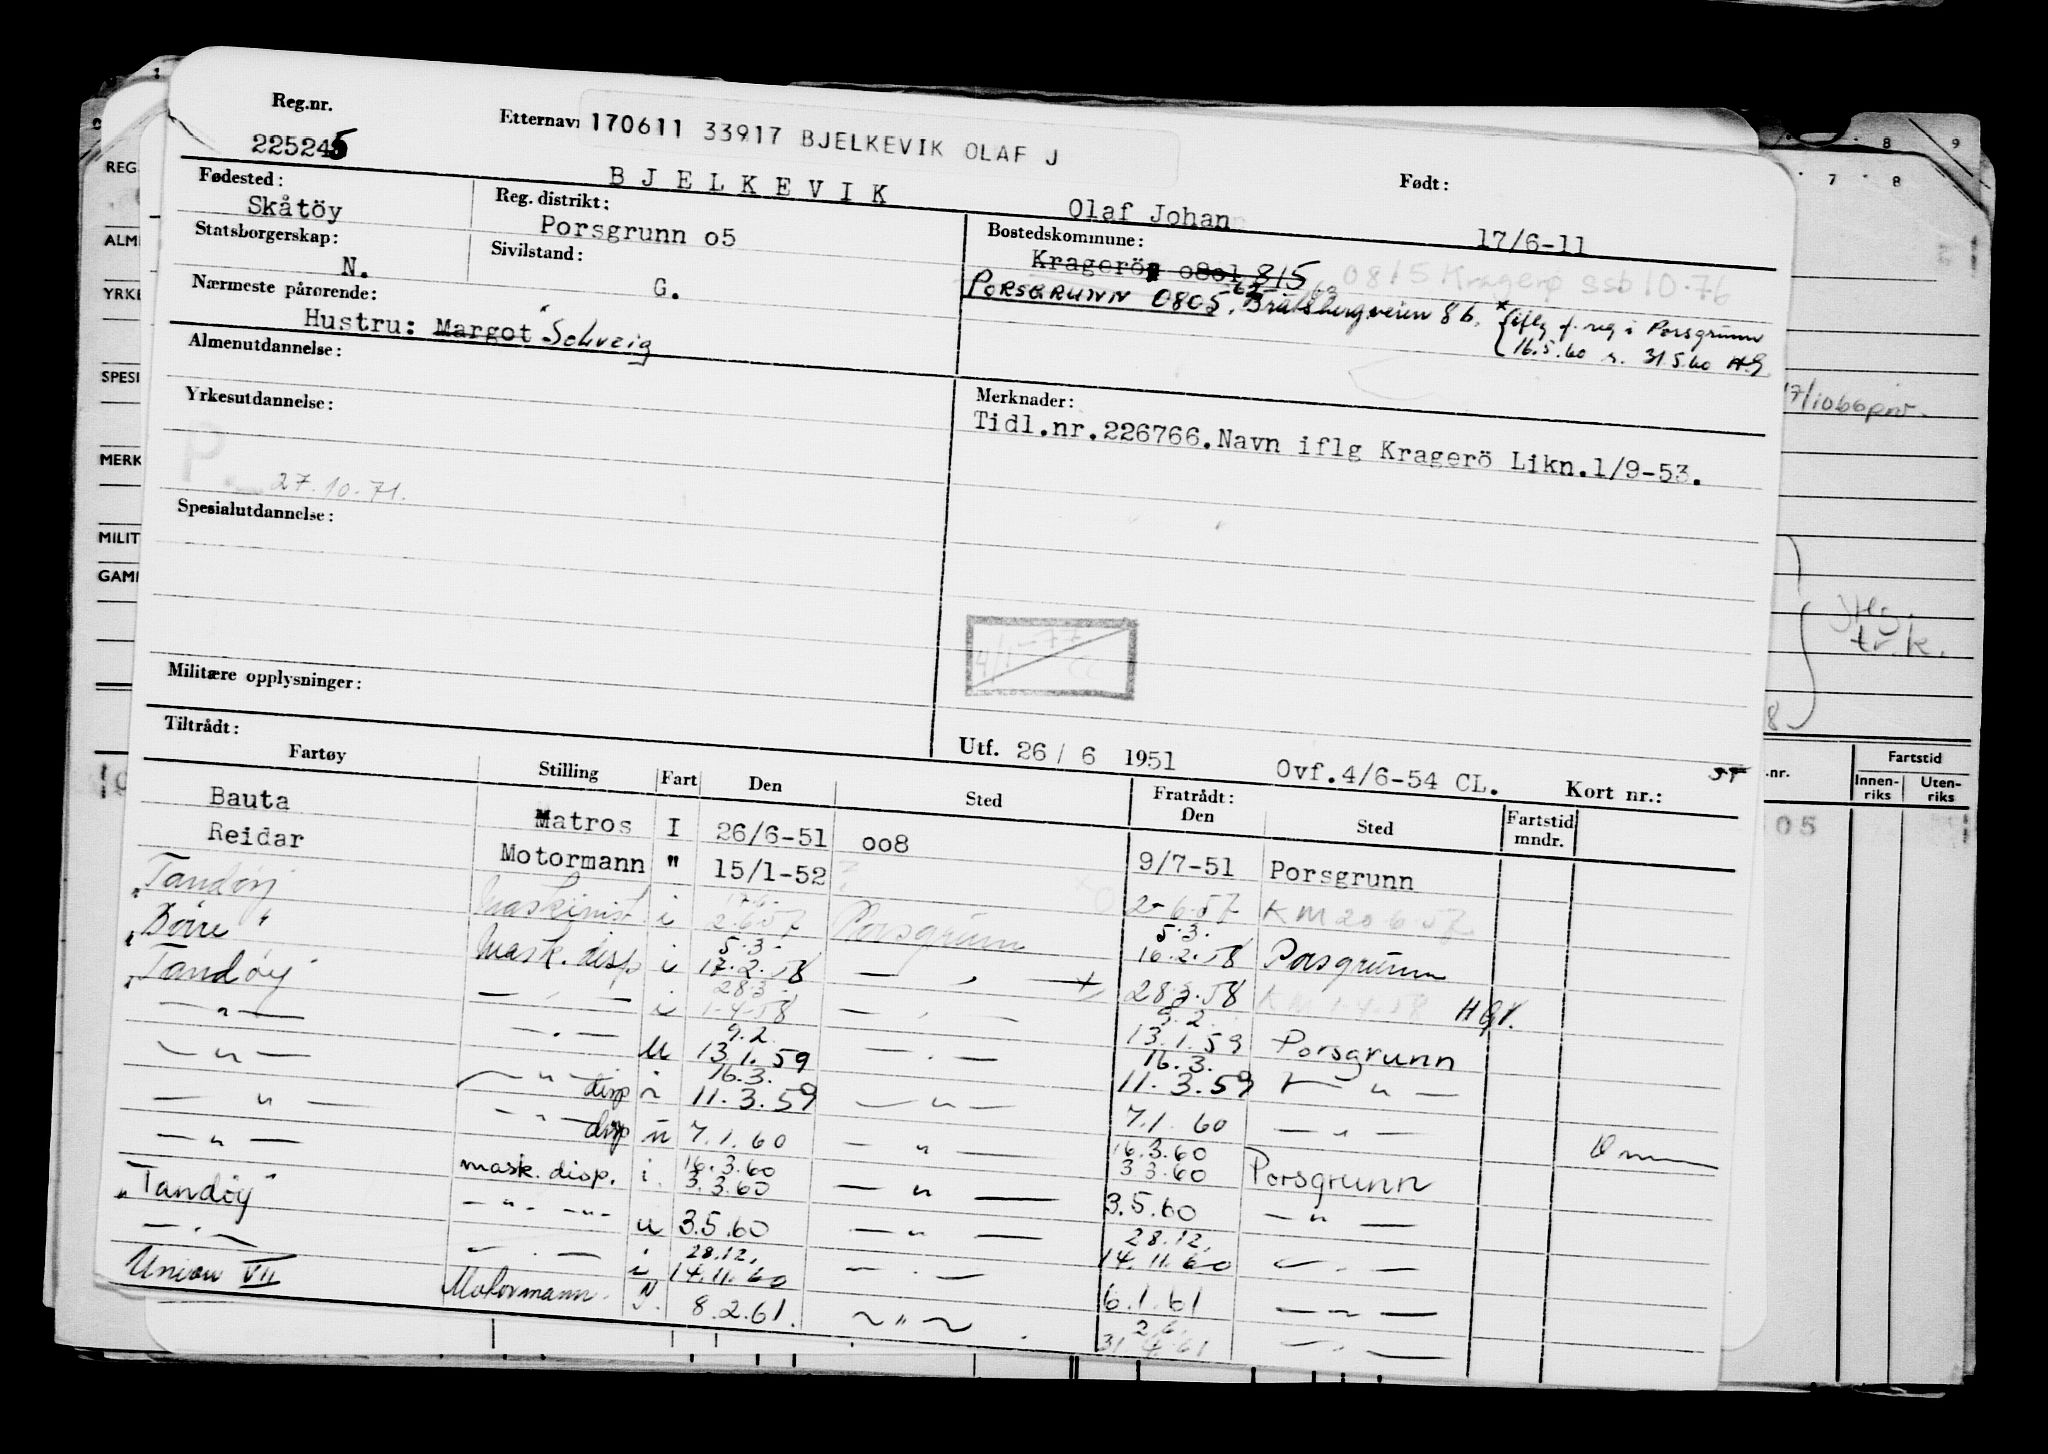 Reg.nr. 225245
Etternavn 170611 33917 BJELKEVIK OLAF J
BJELKEVIK Olaf Johan
Født: 17/6-11
Fødested: Skåtöy
Reg. distrikt: Porsgrunn o5
Bostedskommune: Kragerö o8o1 815
0815 Kragerø ssb 10.76
PORSGRUNN 0805, Bratsbergveien 8b,
iflg f. reg i Porsgrunn
16.5.60 31.5.60 HG
Statsborgerskap: N.
Sivilstand: G.
Nærmeste pårørende:
Hustru: Margot Solveig
Almenutdannelse:
Yrkesutdannelse:
P.
27.10.71.
Spesialutdannelse:
Militære opplysninger:
Merknader:
Tidl.nr.226766.Navn iflg Kragerö Likn.1/9-53.
4/1-77
Utf. 26 / 6 1951 Ovf.4/6-54 CL. Kort nr.:
Tiltrådt:
Fratrådt:
Fartøy Stilling Fart Den Sted Den Sted Fartstid mndr.
Bauta Matros I 26/6-51 oo8 9/7-51 Porsgrunn
Reidar Motormann " 15/1-52
"Tandøy" Maskinist i 2.6.57 Porsgrunn 2-6.57 KM 20.6.57
"Borre" Mask. disp i 5.3. 17.2.58 — " — 5.3. 16.2.58 Porsgrunn
"Tandøy" — " — i 28.3. 1-4-58 — " — 28.3.58 KM 1.4.58 HGK.
— " — — " — U 9.2. 13.1.59 — " — 9.2. 13.1.59 Porsgrunn
— " — — " — disp i 16.3. 11.3.59 — " — 16.3. 11.3.59 — " —
— " — — " — disp u 7.1.60 — " — 7.1.60 — " —
— " — mask. disp. i. 16.3.60 3.3.60 — " — 16.3.60 3.3.60 Porsgrunn
"Tandøy" — " — — " — u 3.5.60 — " — 3.5.60 — " —
— " — — " — i 28.12. 14.11.60 — " — 28.12. 14.11.60 — " —
Union VII Motormann N. 8.2.61. — " — 6.1.61 — " —
31 61 — " —
REG.
ALM
YRKE
SPESI
MERK
MILIT
GAM
7 8 8 9
17/1066pnr.
.nr. Fartstid
Innen-riks Uten-riks
05